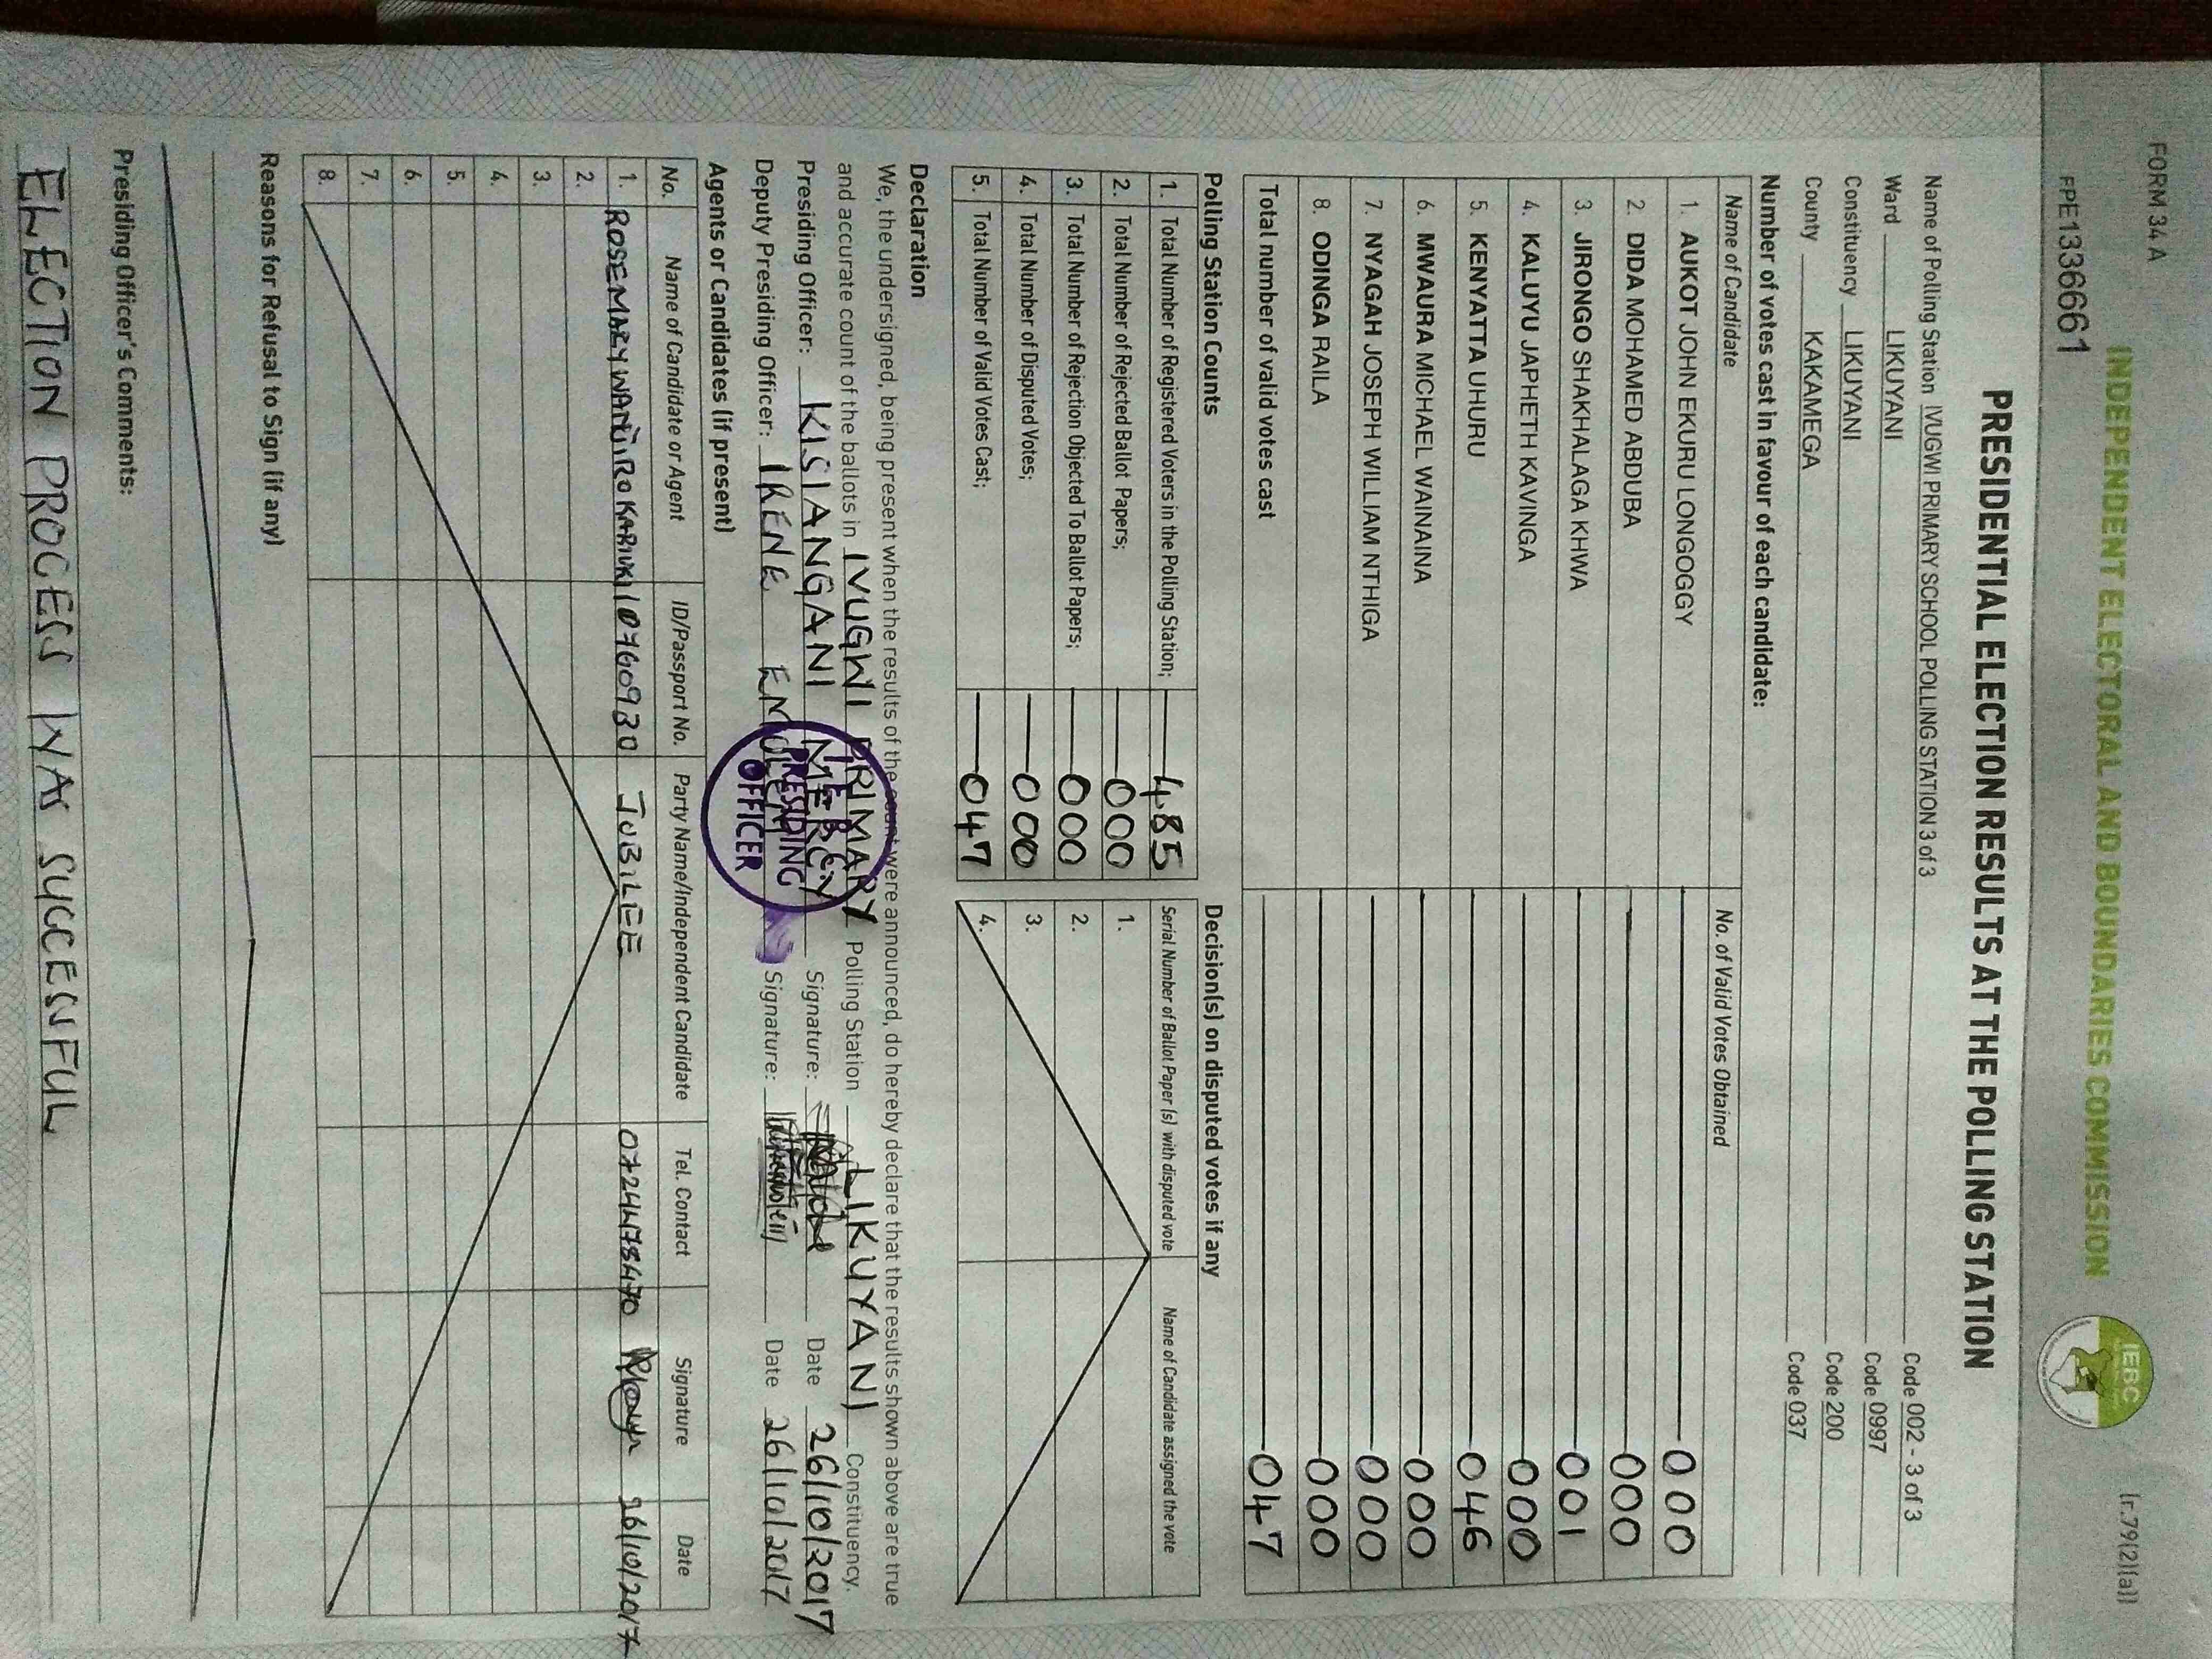 FORM 34 A
(r.79(2)(a))
INDEPENDENT ELECTORAL AND BOUNDARIES COMMISSION
IEBC
PPE1336661
PRESIDENTIAL ELECTION RESULTS AT THE POLLING STATION
Name of Polling Station IVUGWI PRIMARY SCHOOL POLLING STATION 3 of 3 Code 002 - 3 of 3
Ward LIKUYANI Code 0997
Constituency LIKUYANI Code 200
County KAKAMEGA Code 037
Number of votes cast in favour of each candidate:
Name of Candidate No. of Valid Votes Obtained
1. AUKOT JOHN EKURU LONGOGGY 000
2. DIDA MOHAMED ABDUBA 000
3. JIRONGO SHAKHALAGA KHWA 001
4. KALUYU JAPHETH KAVINGA 000
5. KENYATTA UHURU 046
6. MWAURA MICHAEL WAINAINA 000
7. NYAGAH JOSEPH WILLIAM NTHIGA 000
8. ODINGA RAILA 000
Total number of valid votes cast 047
Polling Station Counts
1. Total Number of Registered Voters in the Polling Station; 485
2. Total Number of Rejected Ballot Papers; 000
3. Total Number of Rejection Objected To Ballot Papers; 000
4. Total Number of Disputed Votes; 000
5. Total Number of Valid Votes Cast; 047
Decision(s) on disputed votes if any
Serial Number of Ballot Paper (s) with disputed vote Name of Candidate assigned the vote
1.
2.
3.
4.
Declaration
We, the undersigned, being present when the results of the count were announced, do hereby declare that the results shown above are true
and accurate count of the ballots in IVUGWI PRIMARY Polling Station LIKUYANI Constituency.
Presiding Officer: KISIANGANI MERCY Signature: Date 26/10/2017
Deputy Presiding Officer: IRENE Signature: Date 26/10/2017
IEBC
PRESIDING
OFFICER
Agents or Candidates (if present)
No. Name of Candidate or Agent ID/Passport No. Party Name/Independent Candidate Tel. Contact Signature Date
1. ROSEMARY WANJIRO KARIUKI 10760930 JUBILEE 0724478470 26/10/2017
2.
3.
4.
5.
6.
7.
8.
Reasons for Refusal to Sign (if any)
Presiding Officer's Comments:
ELECTION PROCESS WAS SUCCESSFUL